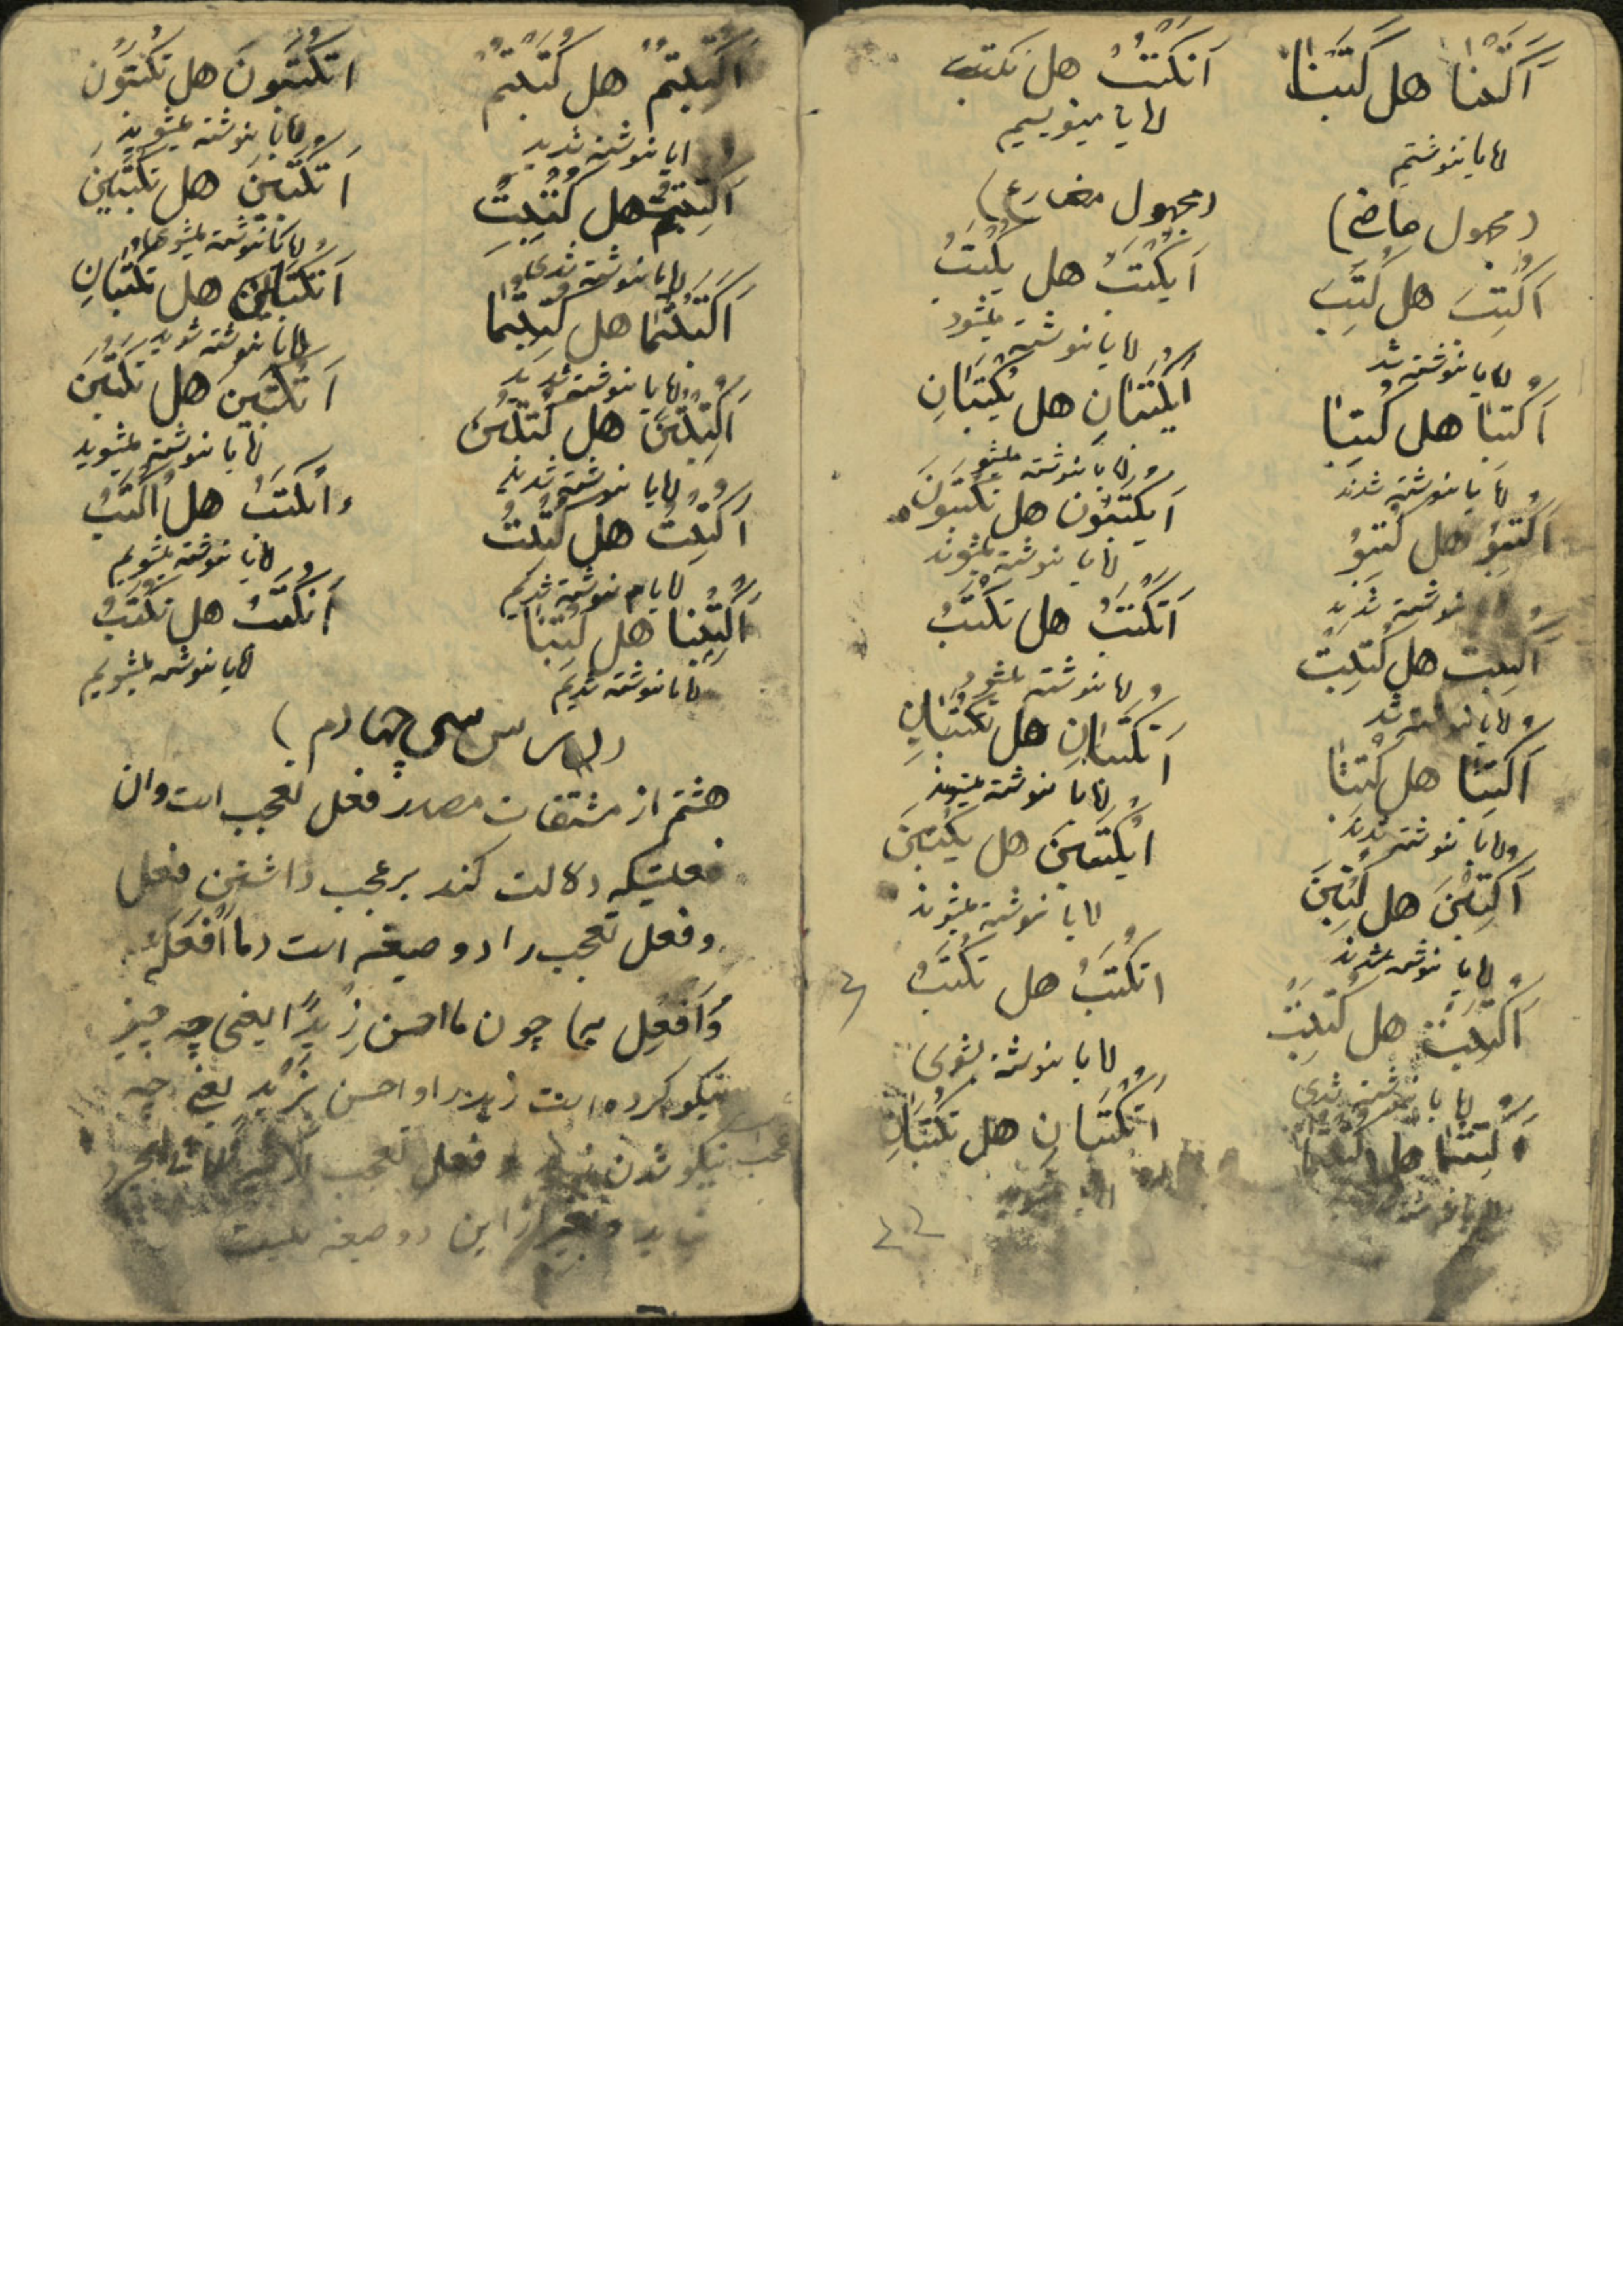 اَکَتَبْنا هل کَتَبْنا
ایا نوشتیم
(مجهول ماضی)
اَکُتِبَ هل کُتِبَ
ایا نوشته شد
اَکُتِبا هل کُتِبا
ایا نوشته شدند
اَکُتِبُو هل کُتِبُو
نوشته شدید
اَکُتِبت هل کُتِبَتْ
ایا نوشته شد
اَکُتِبَتا هل کُتِبَتا
وایا نوشته شدند
اَکُتِبْنَ هل کُتِبْنَ
ایا نوشته شدند
اَکُتِبْتَ هل کُتِبْتَ
ایا نوشته شدی
اَکُتِبْتُما هل کُتِبْتُما
اَنَکْتُبُ هل نکتب
ایا مینویسیم
(مجهول مضارع)
اَیُکْتَبُ هل یُکْتَبُ
ایا نوشته میشود
اَیُکْتَبانِ هل یُکْتَبانِ
ایا نوشته میشو
اَیُکْتَبُون هل یُکْتَبُونَ
ایا نوشته میشوند
اَتُکْتَبُ هل تُکْتَبُ
ایا نوشته میشود
اَتُکْتَبانِ هل تُکْتَبانِ
ایا نوشته میشوند
ایُکْتَبْنَ هل یُکْتَبْنَ
ایا نوشته میشوند
اتُکْتَبُ هل تُکْتَبُ
ایا نوشته بشوی
اَتُکْتَبانِ هل تُکْتَبانِ
اَکُتِبْتُمْ هل کُتِبْتُمْ
ایا نوشته شدید
اَکُتِبْتِ هل کُتِبْتِ
ایا نوشته شدی
اَکُتِبْتُما هل کُتِبْتُما
ایا نوشته شدید
اَکُتِبْتُنَّ هل کُتِبْتُنَّ
ایا نوشته شدید
اَکُتِبْتُ هل کُتِبْتُ
ایا نوشته شدیم
اَکُتِبْنا هل کُتِبْنا
ایا نوشته شدیم
اتُکْتَبُونَ هل تُکْتَبُون
ایا نوشته میشوید
اَتُکْتَبینَ هل تُکْتَبینَ
ایا نوشته میشوی
اَتُکْتَبانِ هل تُکْتَبانِ
ایا نوشته شوید
اَتُکْتَبْنَ هل تُکْتَبْنَ
ایا نوشته میشوید
ءاُکْتَبُ هل اُکْتَبُ
ایا نوشته میشویم
اَنُکْتَبُ هل نُکْتَبُ
ایا نوشته میشویم
(درس سی چهارم)
هشتم از مشتقات مصدر فعل تعجب است وان
فعلیستکه دلالت کند بر عجب داشتن فعل
وفعل تعجب را دو صیغه است (ما اَفْعَلَهُ
وَاَفْعِل بِها چون ما احسن زیدًا یعنی چه چیز
نیکو کرده است زید را و احسن بزید یعنی چه
عجب نیکو شدن فعل تعجب مجرد
و بغیر از این دو صیغه نیست